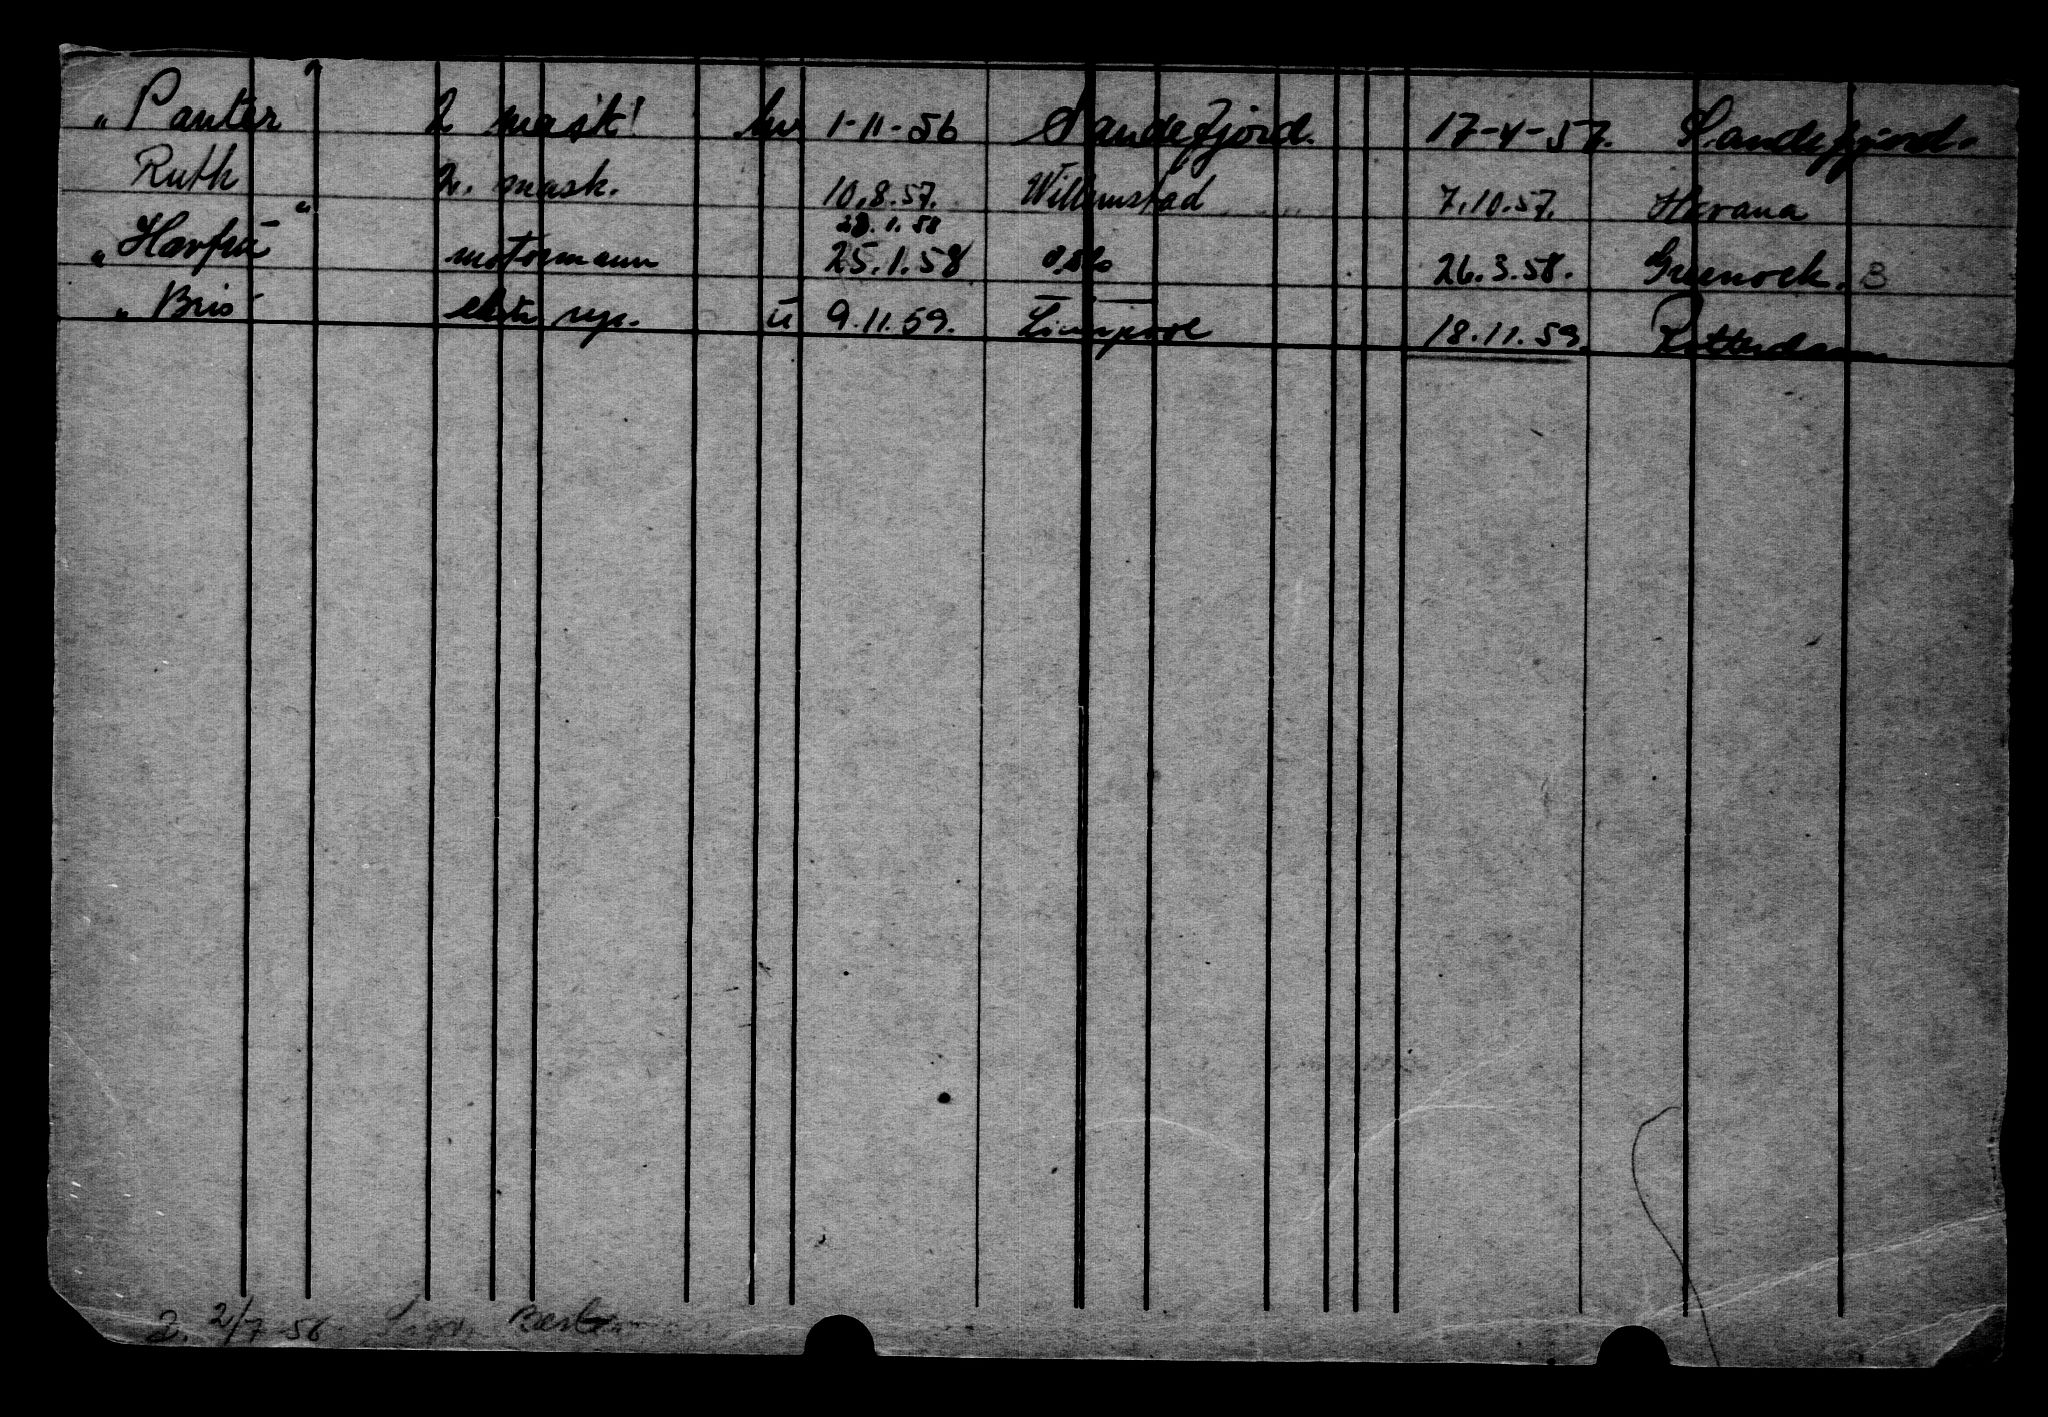 „ Panter " 2 mask! hv 1-11-56 Sandefjord. 17-4-57. Sandefjord.
Ruth 2. mask. 10.8.57. Willemstad 7.10.57. Havana
28.1.58
„ Havfru " motormann 25.1.58 Oslo 26.3.58. Greenock. B
„ Bris" ekstr rep. u 9.11.59. Liverpool 18.11.59. Rotterdam
2. 2/7-56 Sign.